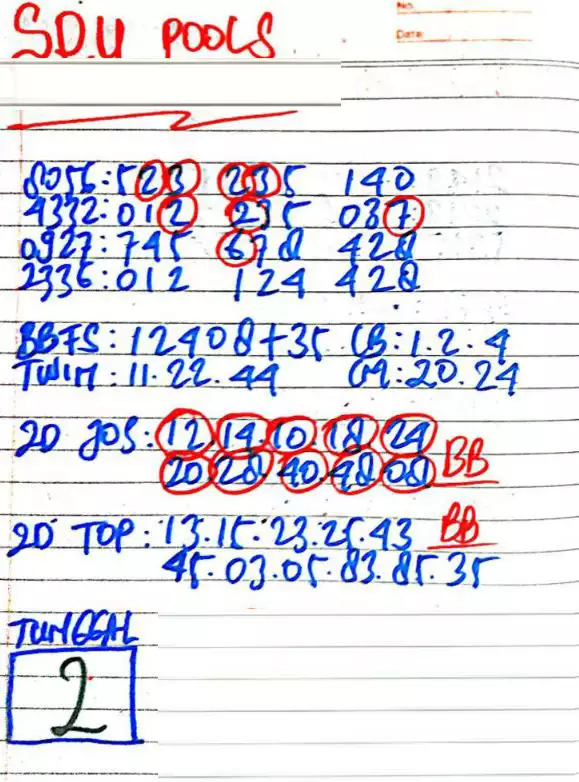 No.
Date:
SDU POOLS
8056:523 235 140
4332:012 235 037
0927:745 678 428
2336:012 124 428
BBFS:12408+35 CB:1.2.4
TWIN:11.22.44 CM:20.24
2D JOS:12.14.10.18.24
20.28.40.48.08 BB
2D TOP:13.15.23.25.43 BB
45.03.05.83.85.35
TUNGGAL
2